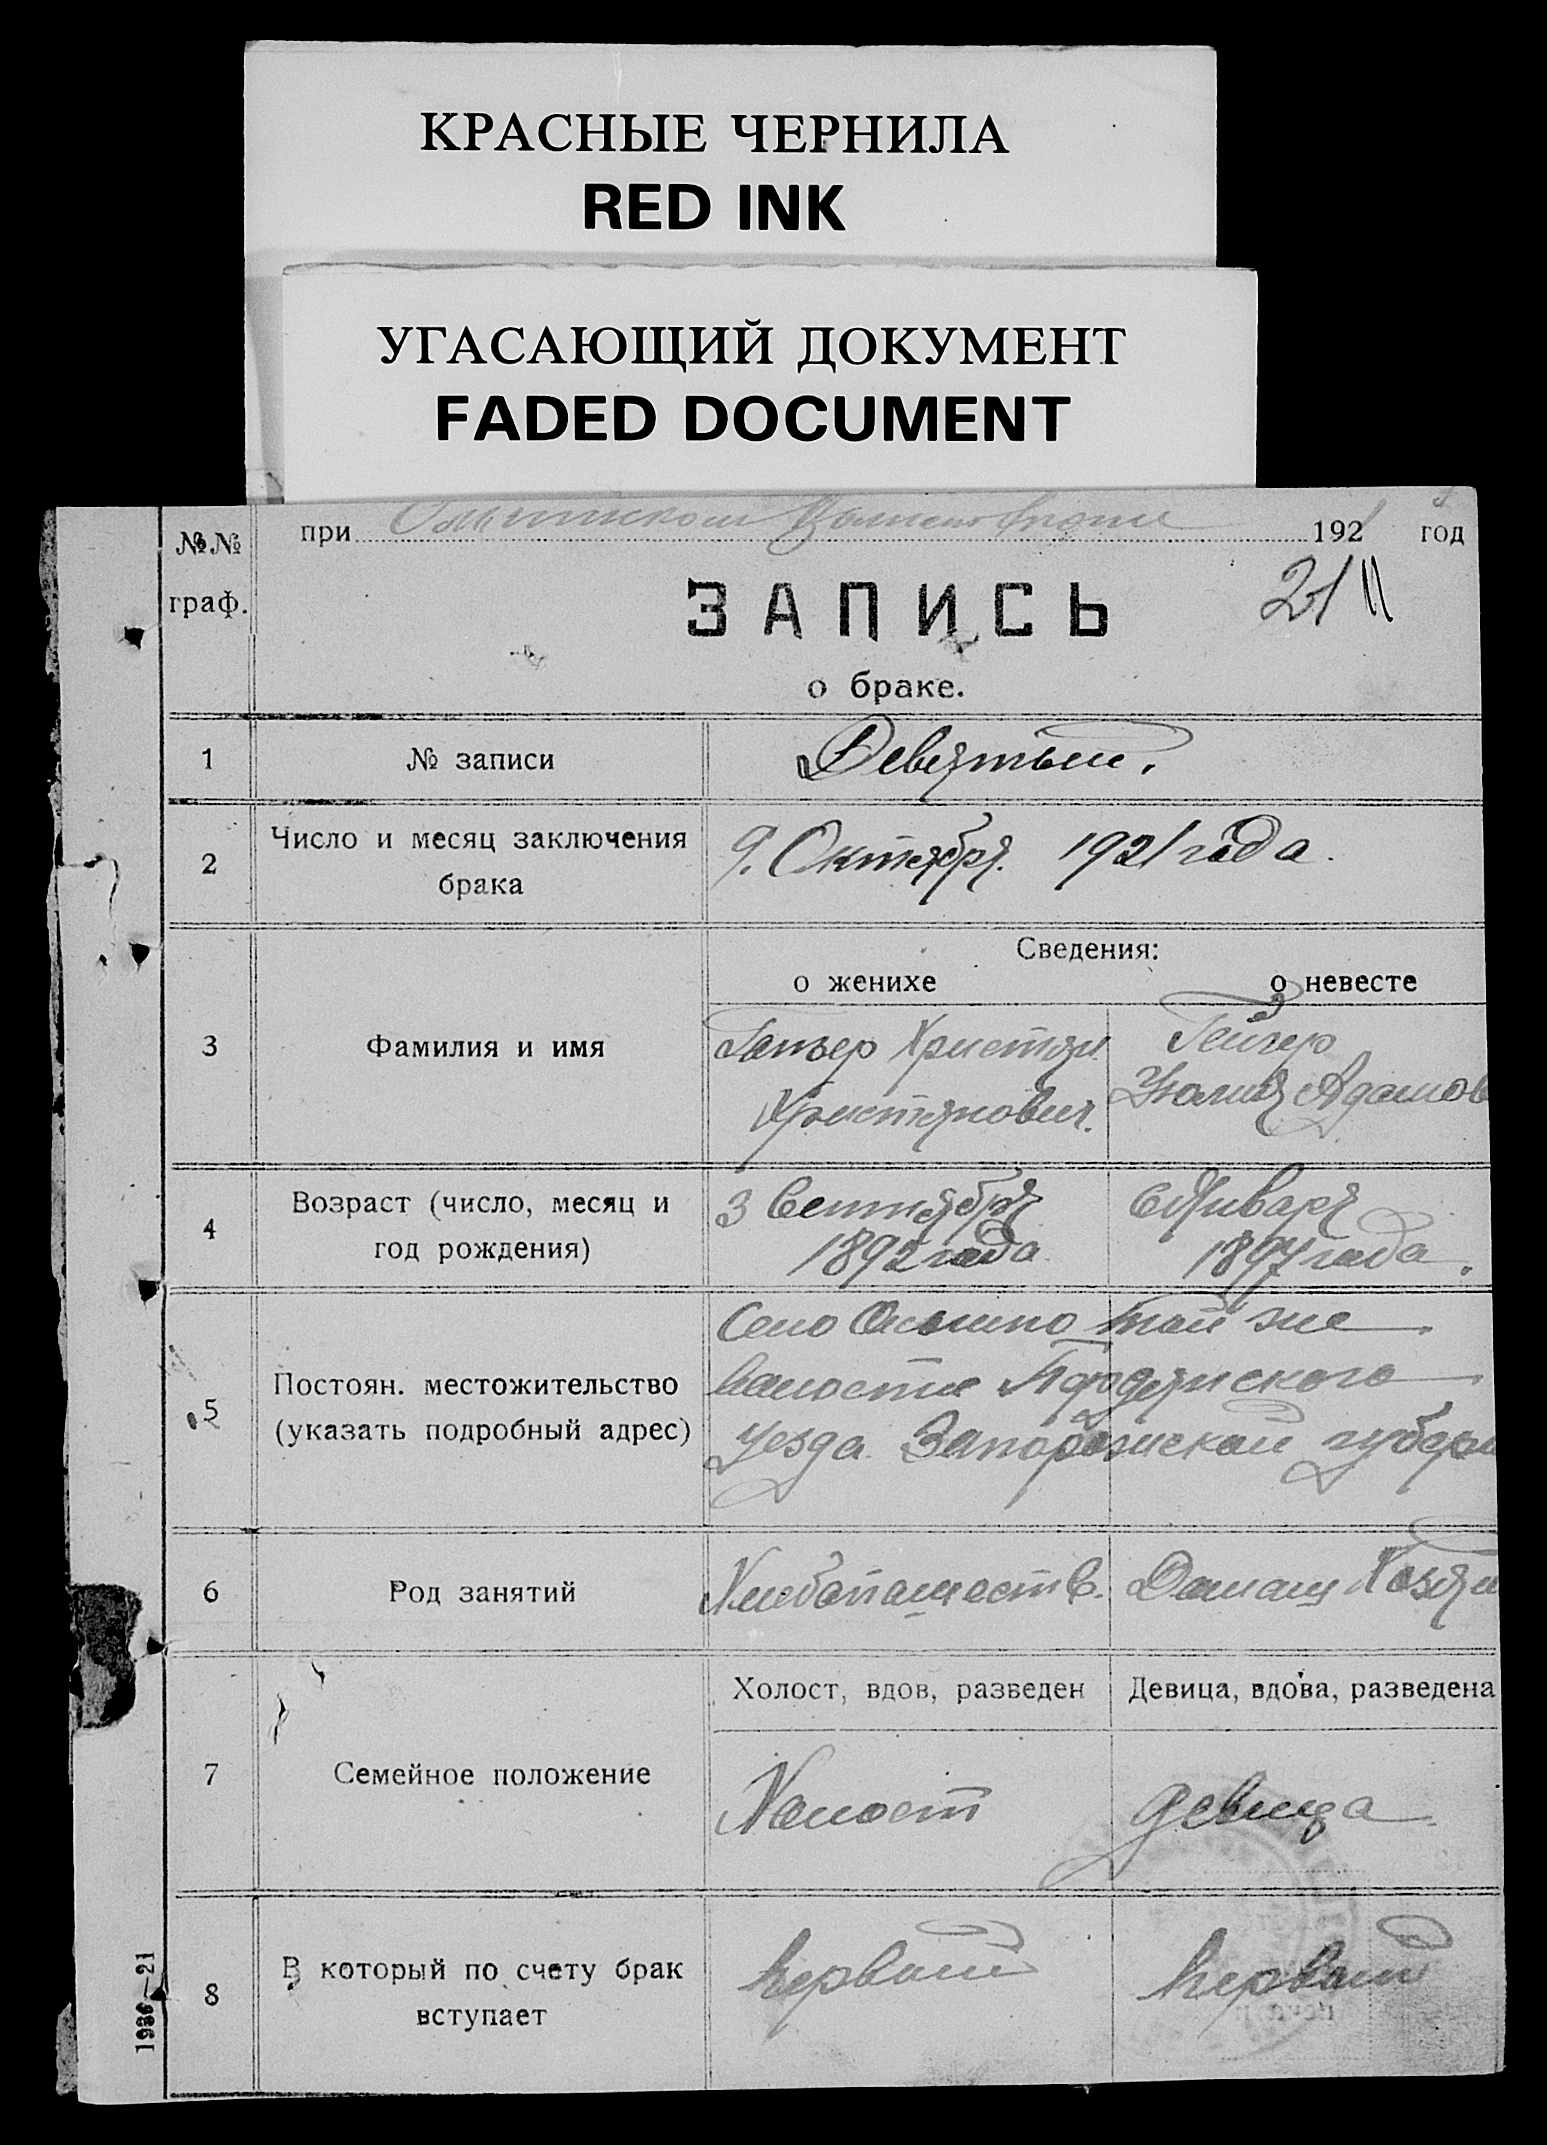 КРАСНЫЕ ЧЕРНИЛА
RED INK
УГАСАЮЩИЙ ДОКУМЕНТ
FADED DOCUMENT
№№ граф.
при 1921 год
ЗАПИСЬ
21
о браке.
1 № записи Девятый.
2 Число и месяц заключения брака 9. Октября. 1921 года.
Сведения:
о женихе о невесте
3 Фамилия и имя
Христян Гейгер
Христянович. Юлия Адамов
4 Возраст (число, месяц и год рождения)
3 Сентября 6 Января
1892 года 1897 года.
5 Постоян. местожительство (указать подробный адрес)
Село той же
волости
Уезда Запорожской губерн
6 Род занятий Хлебопашеств. Домащ Хозяи
7 Семейное положение
Холост, вдов, разведен Девица, вдова, разведена
Холост девица
8 В который по счету брак вступает
первый первый
1936—21